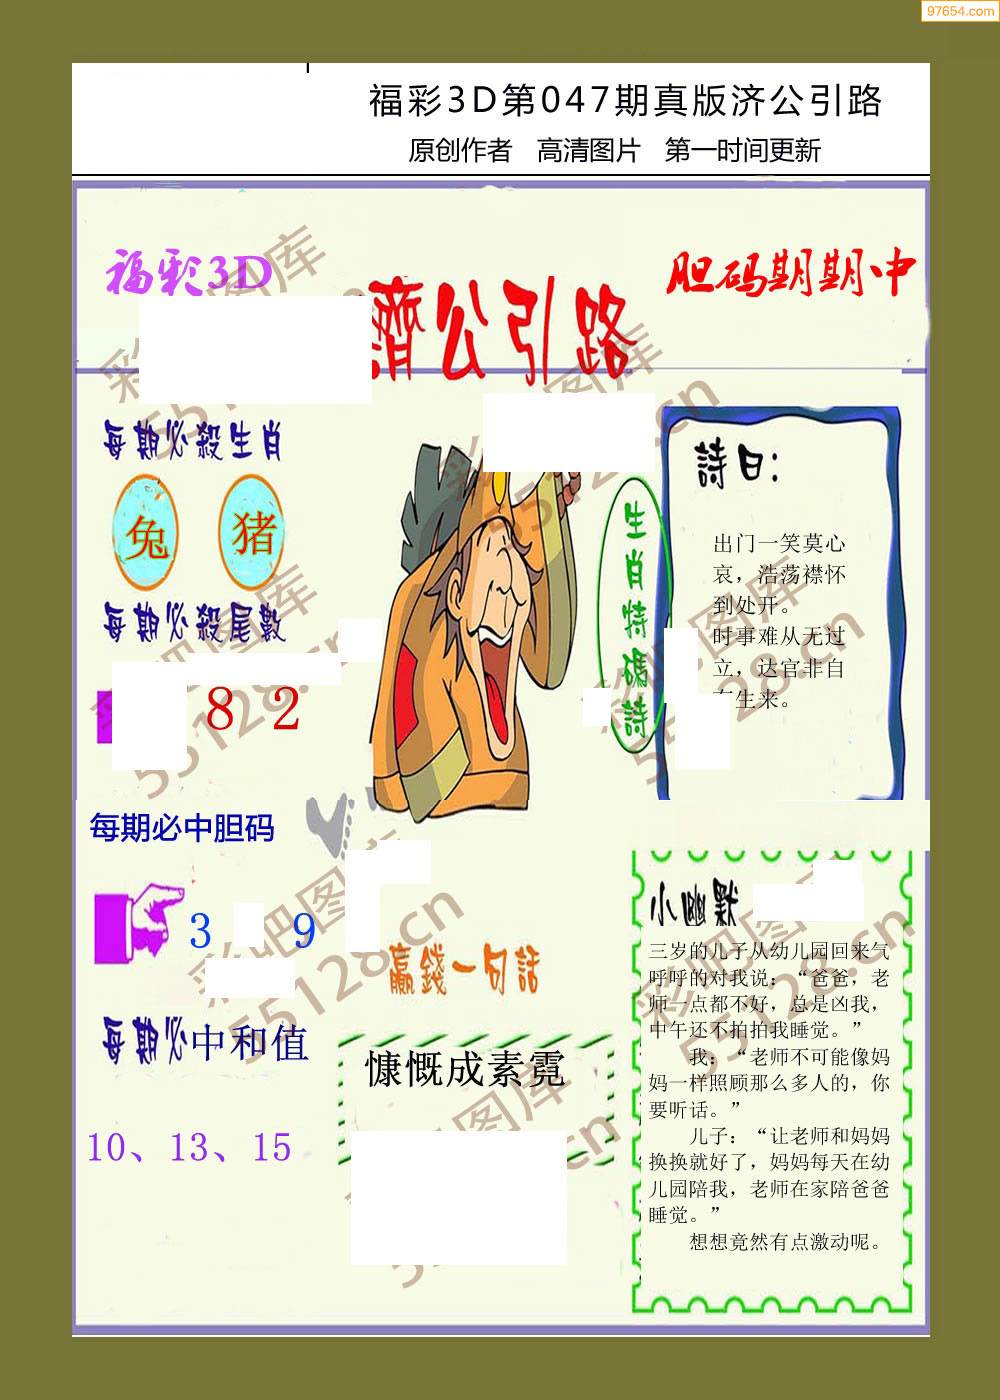 97654.com
福彩3D第047期真版济公引路
原创作者 高清图片 第一时间更新
福彩3D
濟公引路
胆码期期中
每期必殺生肖
兔 猪
每期必殺尾數
8 2
每期必中胆码
3 9
每期必中和值
10、13、15
生肖特碼詩
詩曰：
出门一笑莫心
哀，浩荡襟怀
到处开。
时事难从无过
立，达官非自
有生来。
赢錢一句話
慷慨成素霓
小幽默
三岁的儿子从幼儿园回来气
呼呼的对我说：“爸爸，老
师一点都不好，总是凶我，
中午还不拍拍我睡觉。”
我：“老师不可能像妈
妈一样照顾那么多人的，你
要听话。”
儿子：“让老师和妈妈
换换就好了，妈妈每天在幼
儿园陪我，老师在家陪爸爸
睡觉。”
想想竟然有点激动呢。
彩吧图库
55128.cn